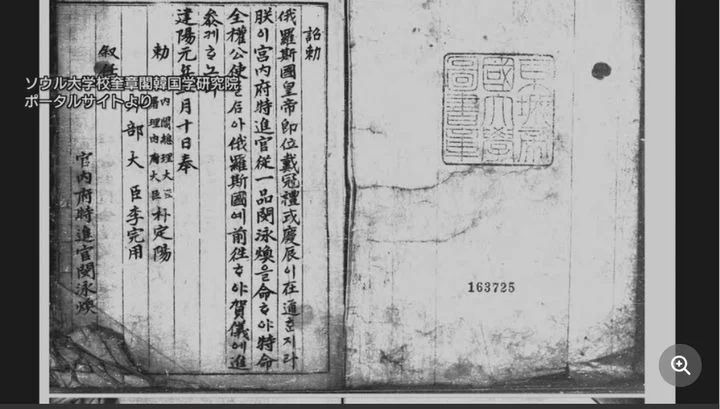 詔勅
俄羅斯國皇帝即位戴冠禮式慶辰이在邇혼지라
朕이宮内府特進官從一品閔泳煥을命하야特命
全權公使를삼아俄羅斯國에前往하야賀儀에進
參케하노라
建陽元年 月十日奉
勅
内閣總理大臣
署理内府大臣 朴定陽
部大臣李完用
敍任
宮内府特進官閔泳煥
京城帝
國大學
圖書章
163725
ソウル大学校奎章閣韓国学研究院
ポータルサイトより